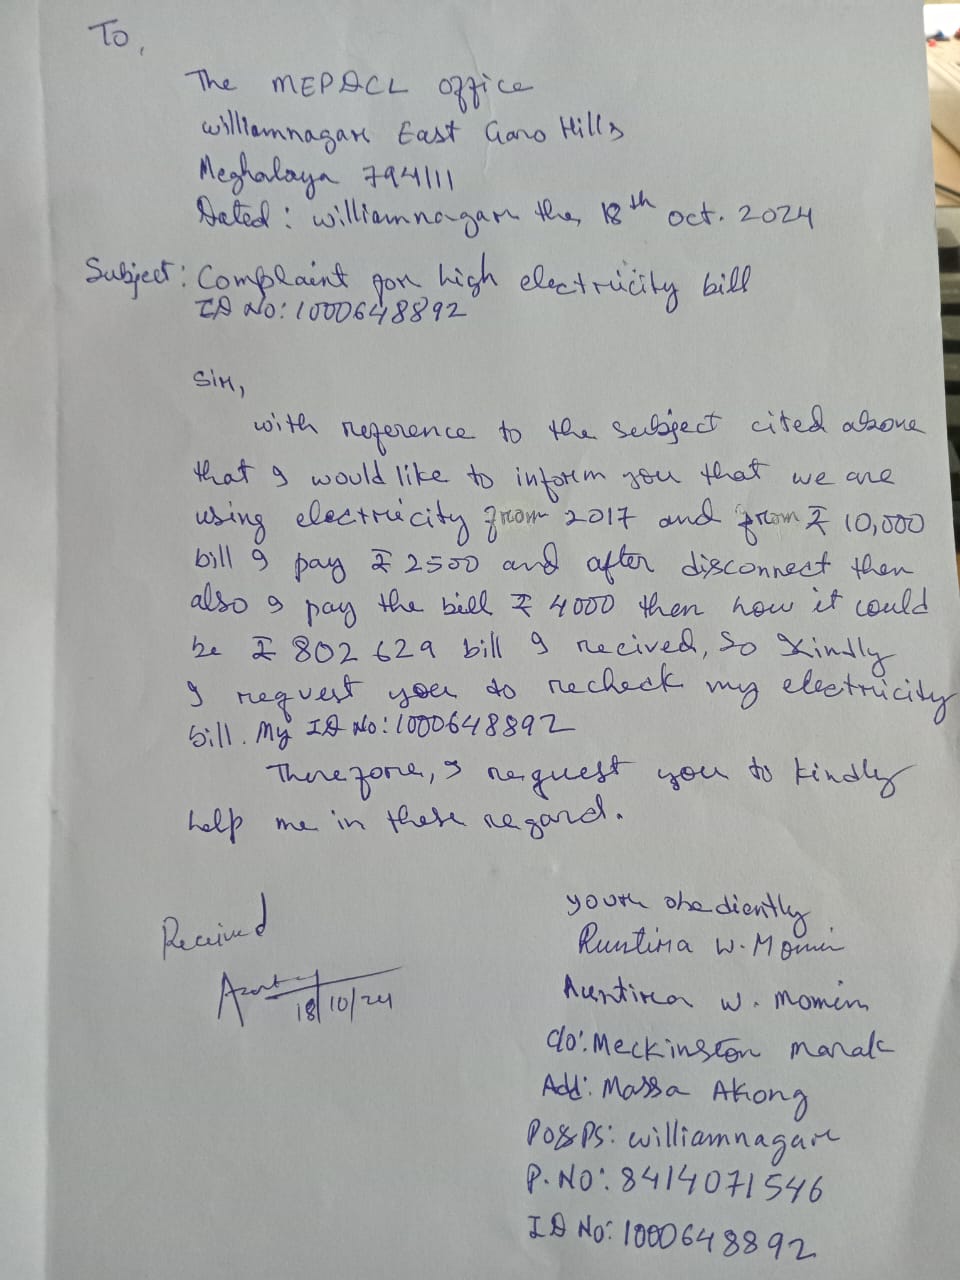 To,
The MEPDCL office
williamnagar East Garo Hills
Meghalaya 794111
Dated: williamnagar the, 18th oct. 2024
Subject: Complaint for high electricity bill
ID No: 1000648892
Sir,
with reference to the subject cited above
that I would like to inform you that we are
using electricity from 2017 and from ₹ 10,000
bill I pay ₹ 2500 and after disconnect then
also I pay the bill ₹ 4000 then how it could
be ₹ 802629 bill I recived, So kindly
I request you to recheck my electricity
bill. My ID No: 1000648892
Therefore, I request you to kindly
help me in these regard.
Received
18/10/24
your obediently
W. Momin
W. Momin
C/o: Meckinston Marak
Add: Massa Akong
PO&PS: williamnagar
P. NO: 8414071546
ID No: 1000648892